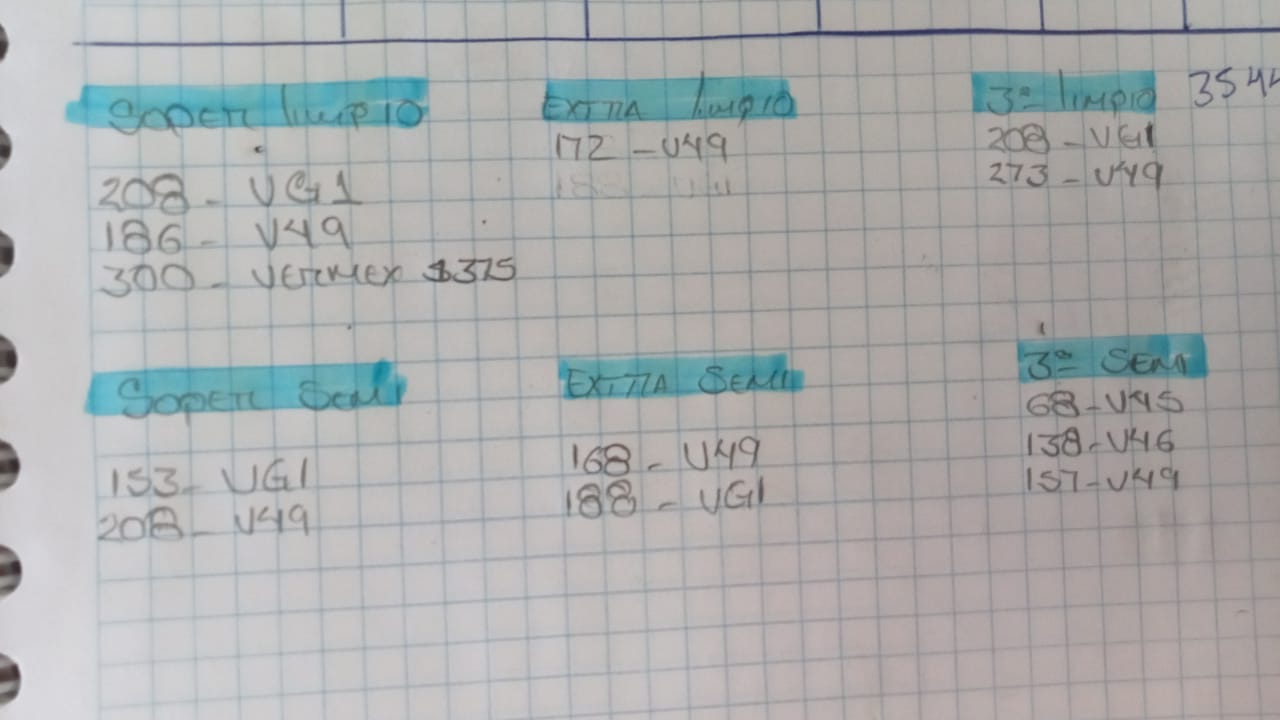 SUPER limpio
208 - VG1
186 - V49
300 - VERMEX $375
EXTRA limpio
172 - V49
3ª limpio
208 - VG1
273 - V49
SUPER SEMI
153 - VG1
208 - V49
EXTRA SEMI
168 - V49
188 - VG1
3ª SEMI
68 - V45
138 - V46
157 - V49